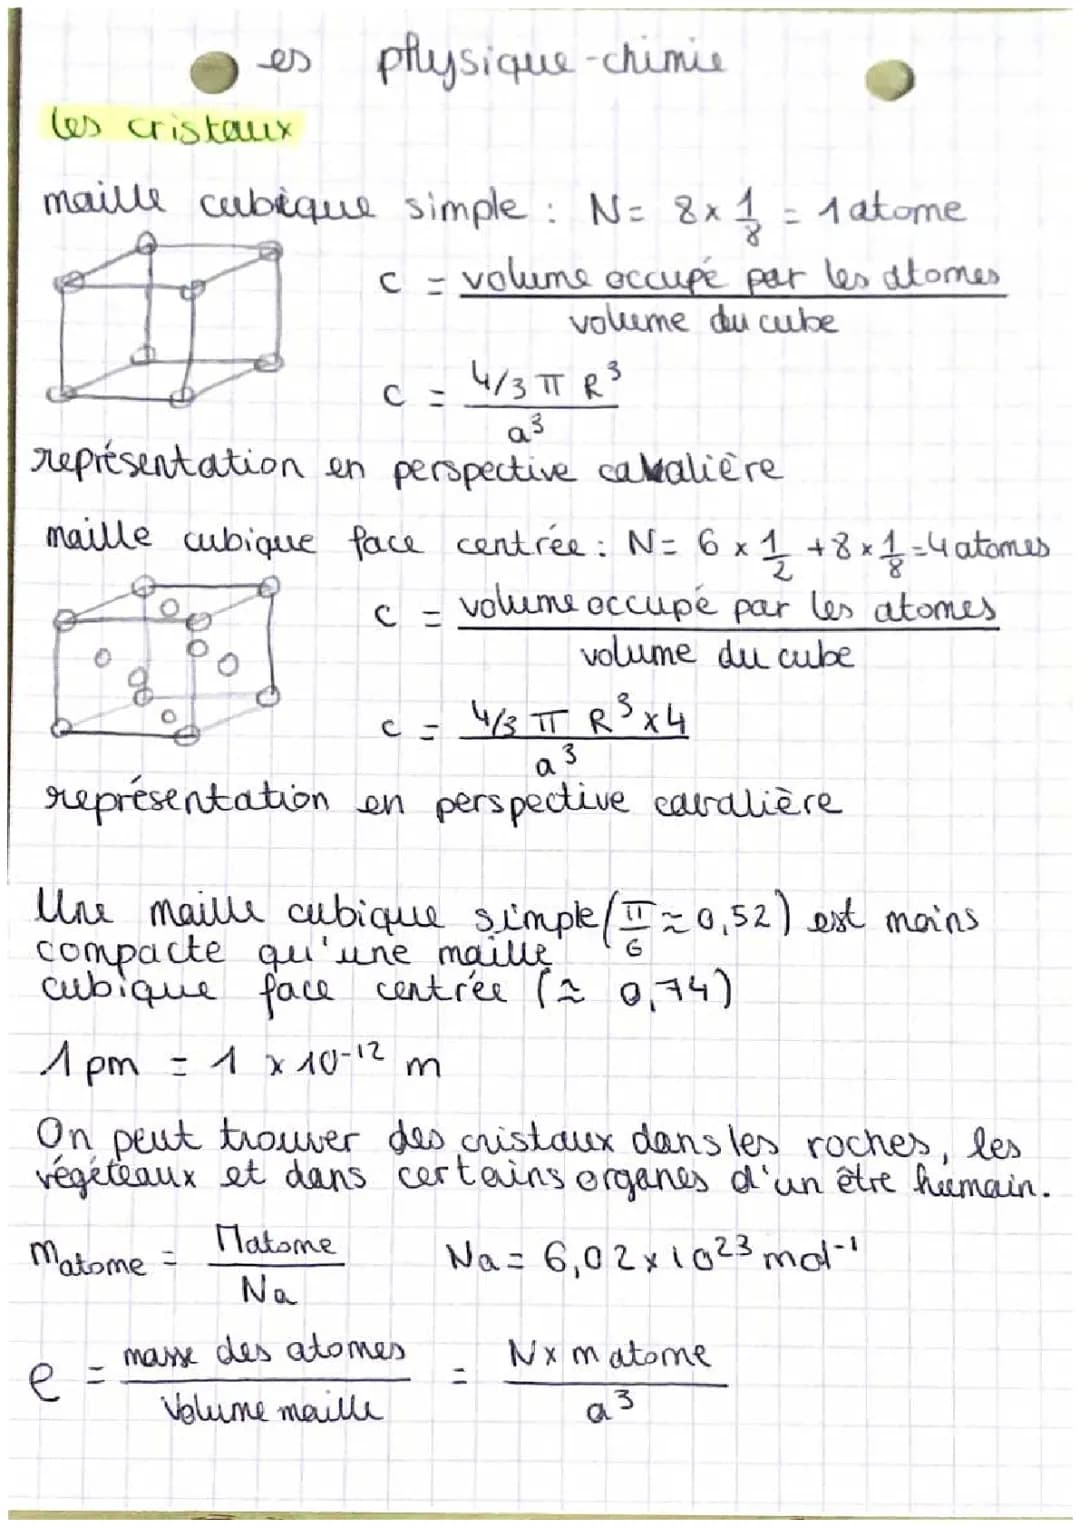 es physique-chimie
les cristaux
maille cubique simple : N = 8 x 1/8 = 1 atome
c = volume occupé par les atomes / volume du cube
c = 4/3 π R³ / a³
représentation en perspective cavalière
maille cubique face centrée : N = 6 x 1/2 + 8 x 1/8 = 4 atomes
c = volume occupé par les atomes / volume du cube
c = 4/3 π R³ x 4 / a³
représentation en perspective cavalière
Une maille cubique simple (π/6 ≈ 0,52) est moins
compacte qu'une maille
cubique face centrée (≈ 0,74)
1 pm = 1 x 10⁻¹² m
On peut trouver des cristaux dans les roches, les
végéteaux et dans certains organes d'un être humain.
matome = Matome / Na Na = 6,02 x 10²³ mol⁻¹
e = masse des atomes / Volume maille = N x matome / a³